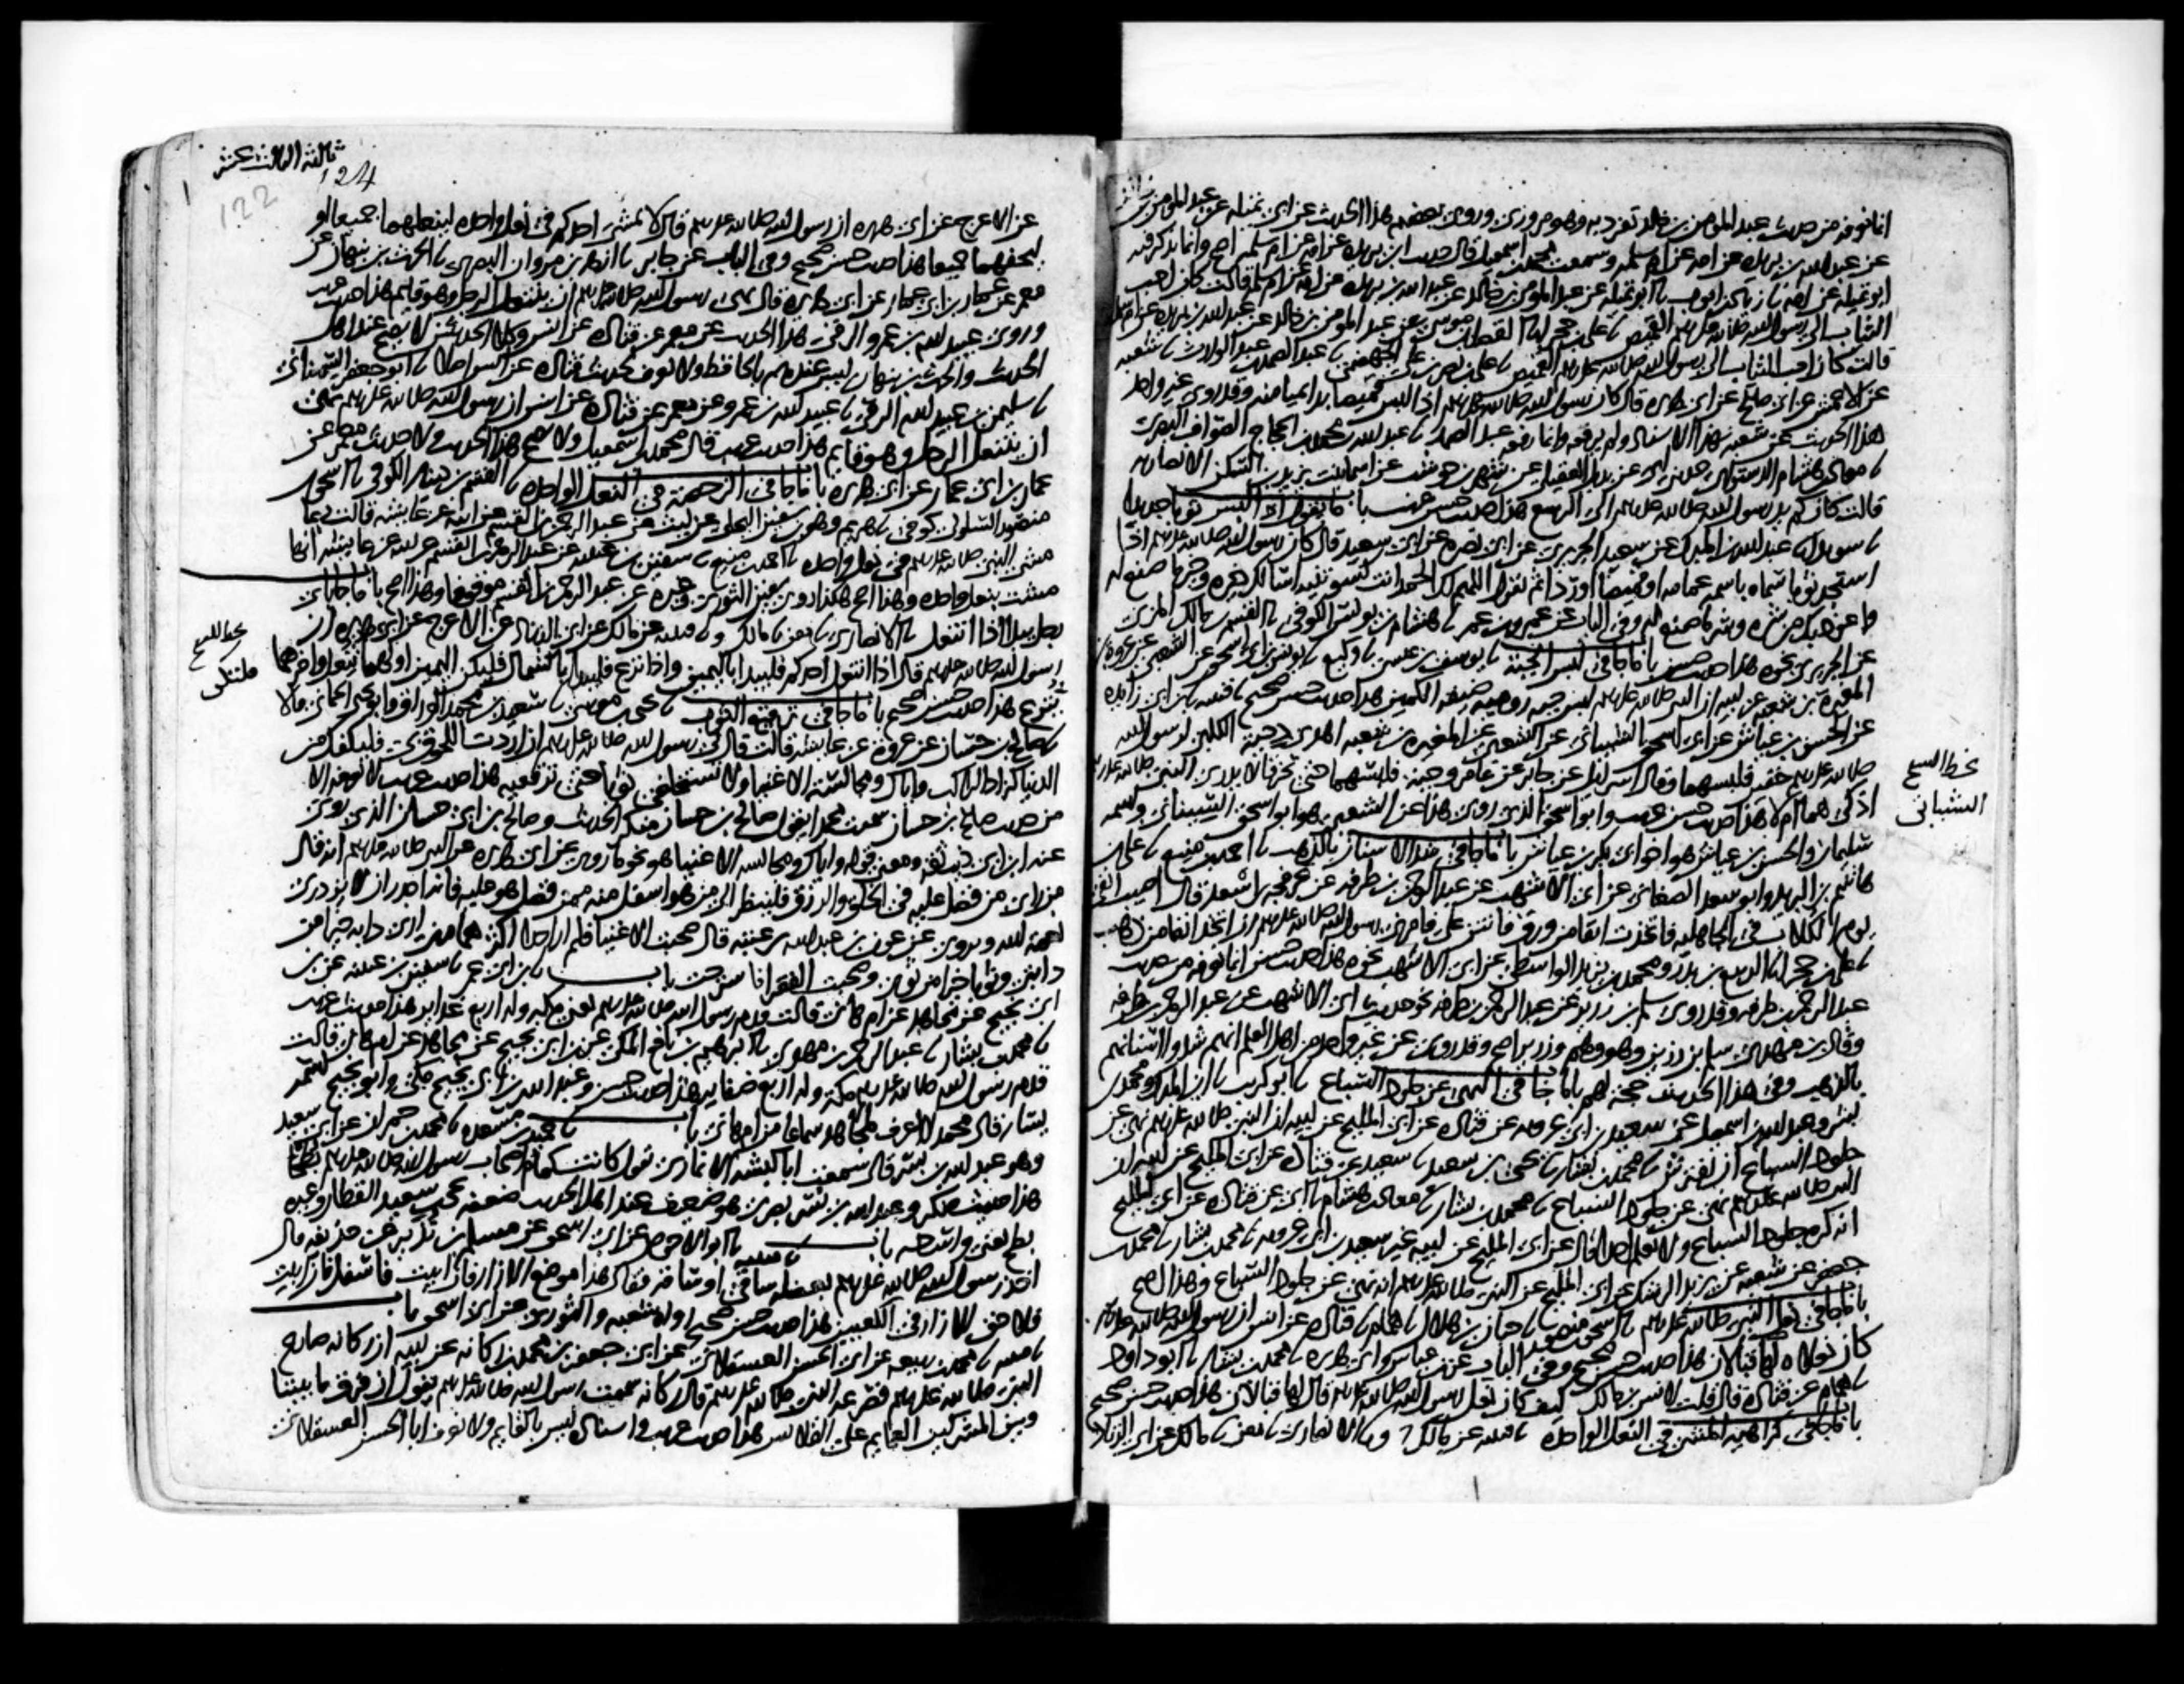 انما نعرفه من حديث عبد المومن بن خالد تفرد به وهو مروزي وروى بعضهم هذا الحديث عن ابي تميله عن عبد المومن بن
عن عبد الله بن بريده عن امه عن ام سلمه وسمعت محمد بن اسمعيل قال حديث ابن بريده عن امه عن ام سلمه اصح وانما يذكر فيه
ابو تميله عن امه نا زياد بن ايوب نا ابو تميله عن عبد المومن بن خالد عن عبد الله بن بريده عن امه عن ام سلمه قالت كان احب
الثياب الى رسول الله صلى الله عليه وسلم القميص نا علي بن حجر انا الفضل بن موسى عن عبد المومن بن خالد عن عبد الله بن بريده عن ام سلمه
قالت كان احب الثياب الى رسول الله صلى الله عليه وسلم القميص نا علي بن نصر بن علي الجهضمي نا عبد الصمد بن عبد الوارث نا شعبه
عن الاعمش عن ابي صالح عن ابي هريره قال كان رسول الله صلى الله عليه وسلم اذا لبس قميصا بدا بميامنه وقد روى غير واحد
هذا الحديث عن شعبه بهذا الاسناد ولم يرفعه وانما رفعه عبد الصمد نا عبد الله بن محمد بن الحجاج الصواف البصري
نا معاذ بن هشام الدستوائي حدثني ابي عن بديل العقيلي عن شهر بن حوشب عن اسما بنت يزيد بن السكن الانصاريه
قالت كان كم يد رسول الله صلى الله عليه وسلم الى الرسغ هذا حديث حسن غريب باب ما يقول اذا لبس ثوبا جديدا
نا سويد انا عبد الله بن المبارك عن سعيد الجريري عن ابي نضره عن ابي سعيد قال كان رسول الله صلى الله عليه وسلم اذا
استجد ثوبا سماه باسمه عمامه او قميصا او ردا ثم يقول اللهم لك الحمد انت كسوتنيه اسالك خيره وخير ما صنع له
واعوذ بك من شره وشر ما صنع له وفي الباب عن عمر وابن عمر نا هشام بن يونس الكوفي نا القسم بن مالك المزني
عن الجريري نحوه هذا حديث حسن باب ما جا في لبس الجبه نا يوسف بن عيسى نا وكيع نا يونس بن ابي اسحق عن الشعبي عن عروه بن
المغيره بن شعبه عن ابيه ان النبي صلى الله عليه وسلم لبس جبه روميه ضيقه الكمين هذا حديث حسن صحيح نا قتيبه نا ابن ابي زايده
عن الحسن بن عياش عن ابي اسحق الشيباني عن الشعبي عن المغيره بن شعبه اهدى دحيه الكلبي لرسول الله
صلى الله عليه وسلم خفين فلبسهما وقال اسرائيل عن جابر عن عامر وجبه فلبسهما حتى تخرقا لا يدري النبي صلى الله عليه وسلم
اذكى هما ام لا هذا حديث حسن غريب وابو اسحق الذي روى هذا عن الشعبي هو ابو اسحق الشيباني واسمه
سليمان والحسن بن عياش هو اخو ابي بكر بن عياش باب ما جا في شد الاسنان بالذهب نا احمد بن منيع نا علي بن
هاشم بن البريد وابو سعد الصغاني عن ابي الاشهب عن عبد الرحمن بن طرفه عن عرفجه بن اسعد قال اصيب انفي
يوم الكلاب في الجاهليه فاتخذت انفا من ورق فانتن علي فامرني رسول الله صلى الله عليه وسلم ان اتخذ انفا من ذهب
نا علي بن حجر نا الربيع بن بدر ومحمد بن يزيد الواسطي عن ابي الاشهب نحوه هذا حديث حسن انما نعرفه من حديث
عبد الرحمن بن طرفه وقد روى سلم بن زرير عن عبد الرحمن بن طرفه نحو حديث ابي الاشهب عن عبد الرحمن بن طرفه
وقال بن مهدي سلم بن رزين وهو وهم وزرير اصح وقد روي عن غير واحد من اهل العلم انهم شدوا اسنانهم
بالذهب وفي هذا الحديث حجه لهم باب ما جا في النهي عن جلود السباع نا ابو كريب نا ابن المبارك ومحمد بن
بشر وعبد الله بن اسمعيل عن سعيد بن ابي عروبه عن قتاده عن ابي المليح عن ابيه ان النبي صلى الله عليه وسلم نهى عن
جلود السباع ان تفترش نا محمد بن بشار نا يحيى بن سعيد نا سعيد عن قتاده عن ابي المليح عن ابيه ان
النبي صلى الله عليه وسلم نهى عن جلود السباع نا محمد بن بشار نا معاذ بن هشام نا ابي عن قتاده عن ابي المليح
انه كره جلود السباع ولا نعلم احدا قال عن ابي المليح عن ابيه غير سعيد بن ابي عروبه نا محمد بن بشار نا محمد بن
جعفر عن شعبه عن يزيد الرشك عن ابي المليح عن النبي صلى الله عليه وسلم انه نهى عن جلود السباع وهذا اصح
باب ما جا في نعل النبي صلى الله عليه وسلم نا اسحق بن منصور نا حبان بن هلال نا همام نا قتاده عن انس ان رسول الله صلى الله عليه وسلم
كان نعلاه لهما قبالان هذا حديث حسن صحيح وفي الباب عن بن عباس وابي هريره نا محمد بن بشار نا ابو داود
نا همام عن قتاده قال قلت لانس بن مالك كيف كان نعل رسول الله صلى الله عليه وسلم قال لهما قبالان هذا حديث حسن صحيح
باب ما جا في كراهيه المشي في النعل الواحده نا قتيبه عن مالك ح ونا الانصاري نا معن نا مالك عن ابي الزناد
بخط الشيخ
الشيباني
ثالثه الثالث عشر
124
122
عن الاعرج عن ابي هريره ان رسول الله صلى الله عليه وسلم قال لا يمشي احدكم في نعل واحده لينعلهما جميعا او
ليحفهما جميعا هذا حديث حسن صحيح وفي الباب عن جابر نا ازهر بن مروان البصري نا الحرث بن نبهان عن
معمر عن عمار بن ابي عمار عن ابي هريره قال نهى رسول الله صلى الله عليه وسلم ان ينتعل الرجل وهو قايم هذا حديث غريب
وروى عبيد الله بن عمرو الرقي هذا الحديث عن معمر عن قتاده عن انس وكلا الحديثين لا يصح عند اهل
الحديث والحرث بن نبهان ليس عندهم بالحافظ ولا نعرف لحديث قتاده عن انس اصلا نا ابو جعفر السمناني
نا سليمن بن عبيد الله الرقي نا عبيد الله بن عمرو عن معمر عن قتاده عن انس ان رسول الله صلى الله عليه وسلم نهى
ان ينتعل الرجل وهو قايم هذا حديث غريب قال محمد بن اسمعيل ولا يصح هذا الحديث ولا حديث معمر عن
عمار بن ابي عمار عن ابي هريره باب ما جا في الرخصه في النعل الواحده نا القسم بن دينار الكوفي نا اسحق بن
منصور السلولي كوفي نا هريم وهو بن سفين البجلي عن ليث عن عبد الرحمن بن القسم عن ابيه عن عايشه قالت ربما
مشى النبي صلى الله عليه وسلم في نعل واحده نا احمد بن منيع نا سفين بن عيينه عن عبد الرحمن بن القسم عن ابيه عن عايشه انها
مشت بنعل واحده وهذا اصح هكذا روى سفين الثوري وغيره عن عبد الرحمن بن القسم موقوفا وهذا اصح باب ما جا باي
رجل يبدا اذا انتعل نا الانصاري نا معن نا مالك ونا قتيبه عن مالك عن ابي الزناد عن الاعرج عن ابي هريره ان
رسول الله صلى الله عليه وسلم قال اذا انتعل احدكم فليبدا باليمين واذا نزع فليبدا بالشمال فليكن اليمين اولهما تنعل واخرهما
تنزع هذا حديث حسن صحيح باب ما جا في ترقيع الثوب نا يحيى بن موسى نا سعيد بن محمد الوراق وابو يحيى الحماني قالا
نا صالح بن حسان عن عروه عن عايشه قالت قال لي رسول الله صلى الله عليه وسلم ان اردت اللحوق بي فليكفك من
الدنيا كزاد الراكب واياك ومجالسه الاغنيا ولا تستخلقي ثوبا حتى ترقعيه هذا حديث غريب لا نعرفه الا
من حديث صالح بن حسان سمعت محمدا يقول صالح بن حسان منكر الحديث وصالح بن ابي حسان الذي روى
عنه ابن ابي ذيب ثقه ومعنى قوله واياك ومجالسه الاغنيا هو نحو ما روي عن ابي هريره عن النبي صلى الله عليه وسلم انه قال
من راى من فضل عليه في الخلق والرزق فلينظر الى من هو اسفل منه ممن فضل هو عليه فانه اجدر ان لا يزدري
نعمه الله ويروى عن عون بن عبد الله بن عتبه قال صحبت الاغنيا فلم ار احدا اكثر هما مني ارى دابه خيرا من
دابتي وثوبا خيرا من ثوبي وصحبت الفقرا فاسترحت باب نا بن ابي عمر نا سفين بن عيينه عن بن
ابي نجيح عن مجاهد عن ام هاني قالت قدم رسول الله صلى الله عليه وسلم يعني مكه وله اربع غداير هذا حديث غريب
نا محمد بن بشار نا عبد الرحمن بن مهدي نا ابرهيم بن نافع المكي عن بن ابي نجيح عن مجاهد عن ام هاني قالت
قدم رسول الله صلى الله عليه وسلم مكه وله اربع ضفاير هذا حديث حسن وعبد الله بن ابي نجيح مكي وابو نجيح اسمه
يسار قال محمد لا اعرف لمجاهد سماعا من ام هاني باب نا حميد بن مسعده نا محمد بن حمران عن ابي سعيد
وهو عبد الله بن بسر قال سمعت ابا كبشه الانماري يقول كانت كمام اصحاب رسول الله صلى الله عليه وسلم بطحا
هذا حديث منكر وعبد الله بن بسر بصري هو ضعيف عند اهل الحديث ضعفه يحيى بن سعيد القطان وغيره
بطح يعني واسعه باب نا قتيبه نا ابو الاحوص عن ابي اسحق عن مسلم بن نذير عن حذيفه قال
اخذ رسول الله صلى الله عليه وسلم بعضله ساقي او ساقه فقال هذا موضع الازار فان ابيت فاسفل فان ابيت
فلا حق للازار في الكعبين هذا حديث حسن صحيح رواه شعبه والثوري عن ابي اسحق باب
نا قتيبه نا محمد بن ربيعه عن ابي الحسن العسقلاني عن ابي جعفر بن محمد بن ركانه عن ابيه ان ركانه صارع
النبي صلى الله عليه وسلم فصرعه النبي صلى الله عليه وسلم قال ركانه سمعت رسول الله صلى الله عليه وسلم يقول ان فرق ما بيننا
وبين المشركين العمايم على القلانس هذا حديث غريب واسناده ليس بالقايم ولا نعرف ابا الحسن العسقلاني
بخط الشيخ